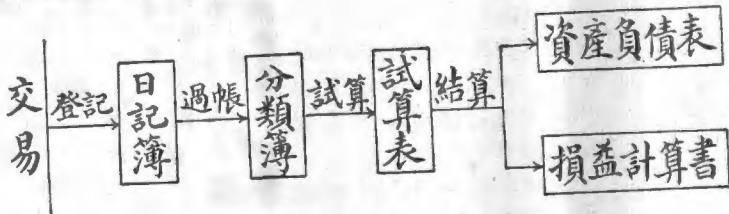 交易
登記
日記簿
過帳
分類簿
試算
試算表
結算
資產負債表
損益計算書